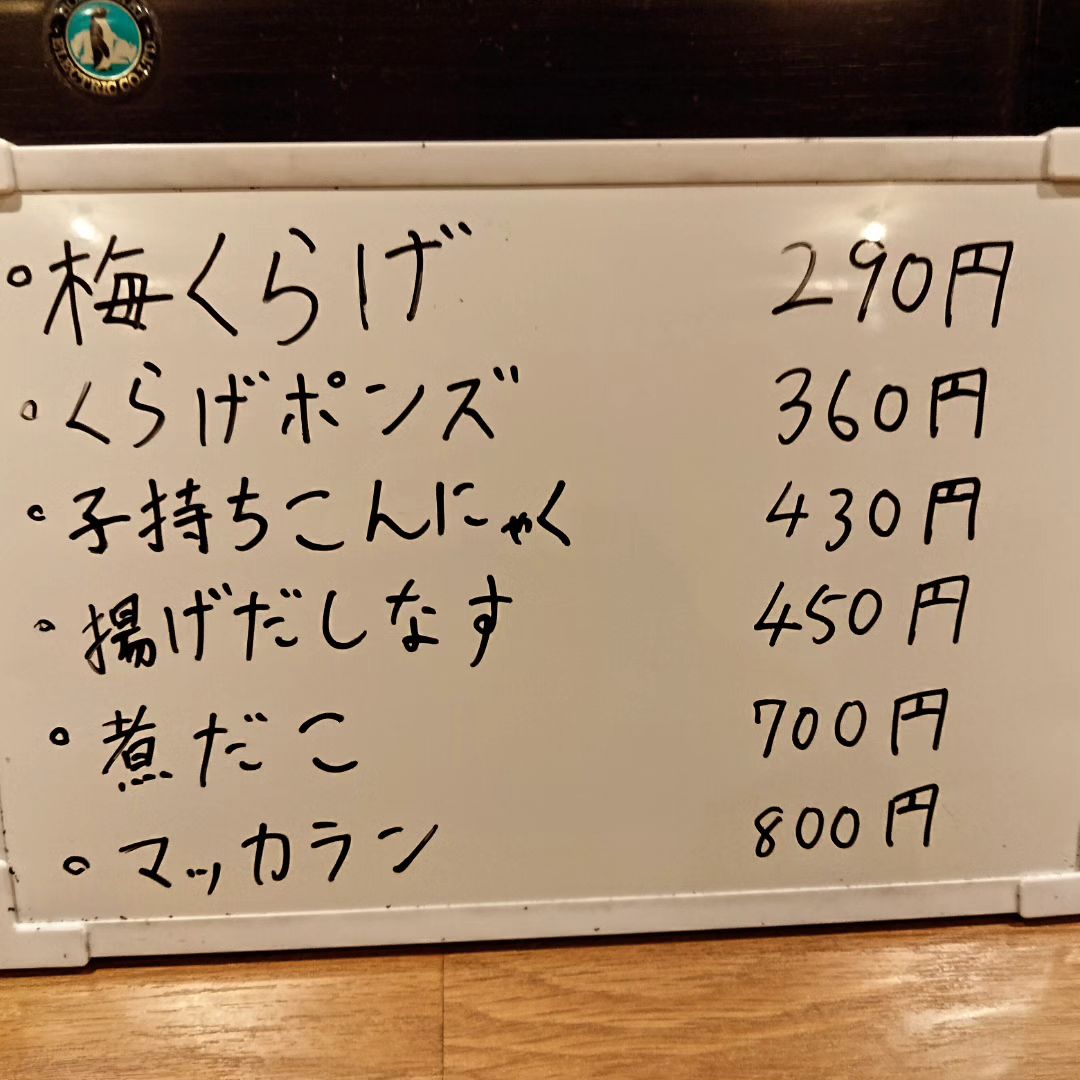 ELECTRIC CO.LTD
。梅くらげ 290円
。くらげポンズ 360円
。子持ちこんにゃく 430円
。揚げだしなす 450円
。煮だこ 700円
。マッカラン 800円